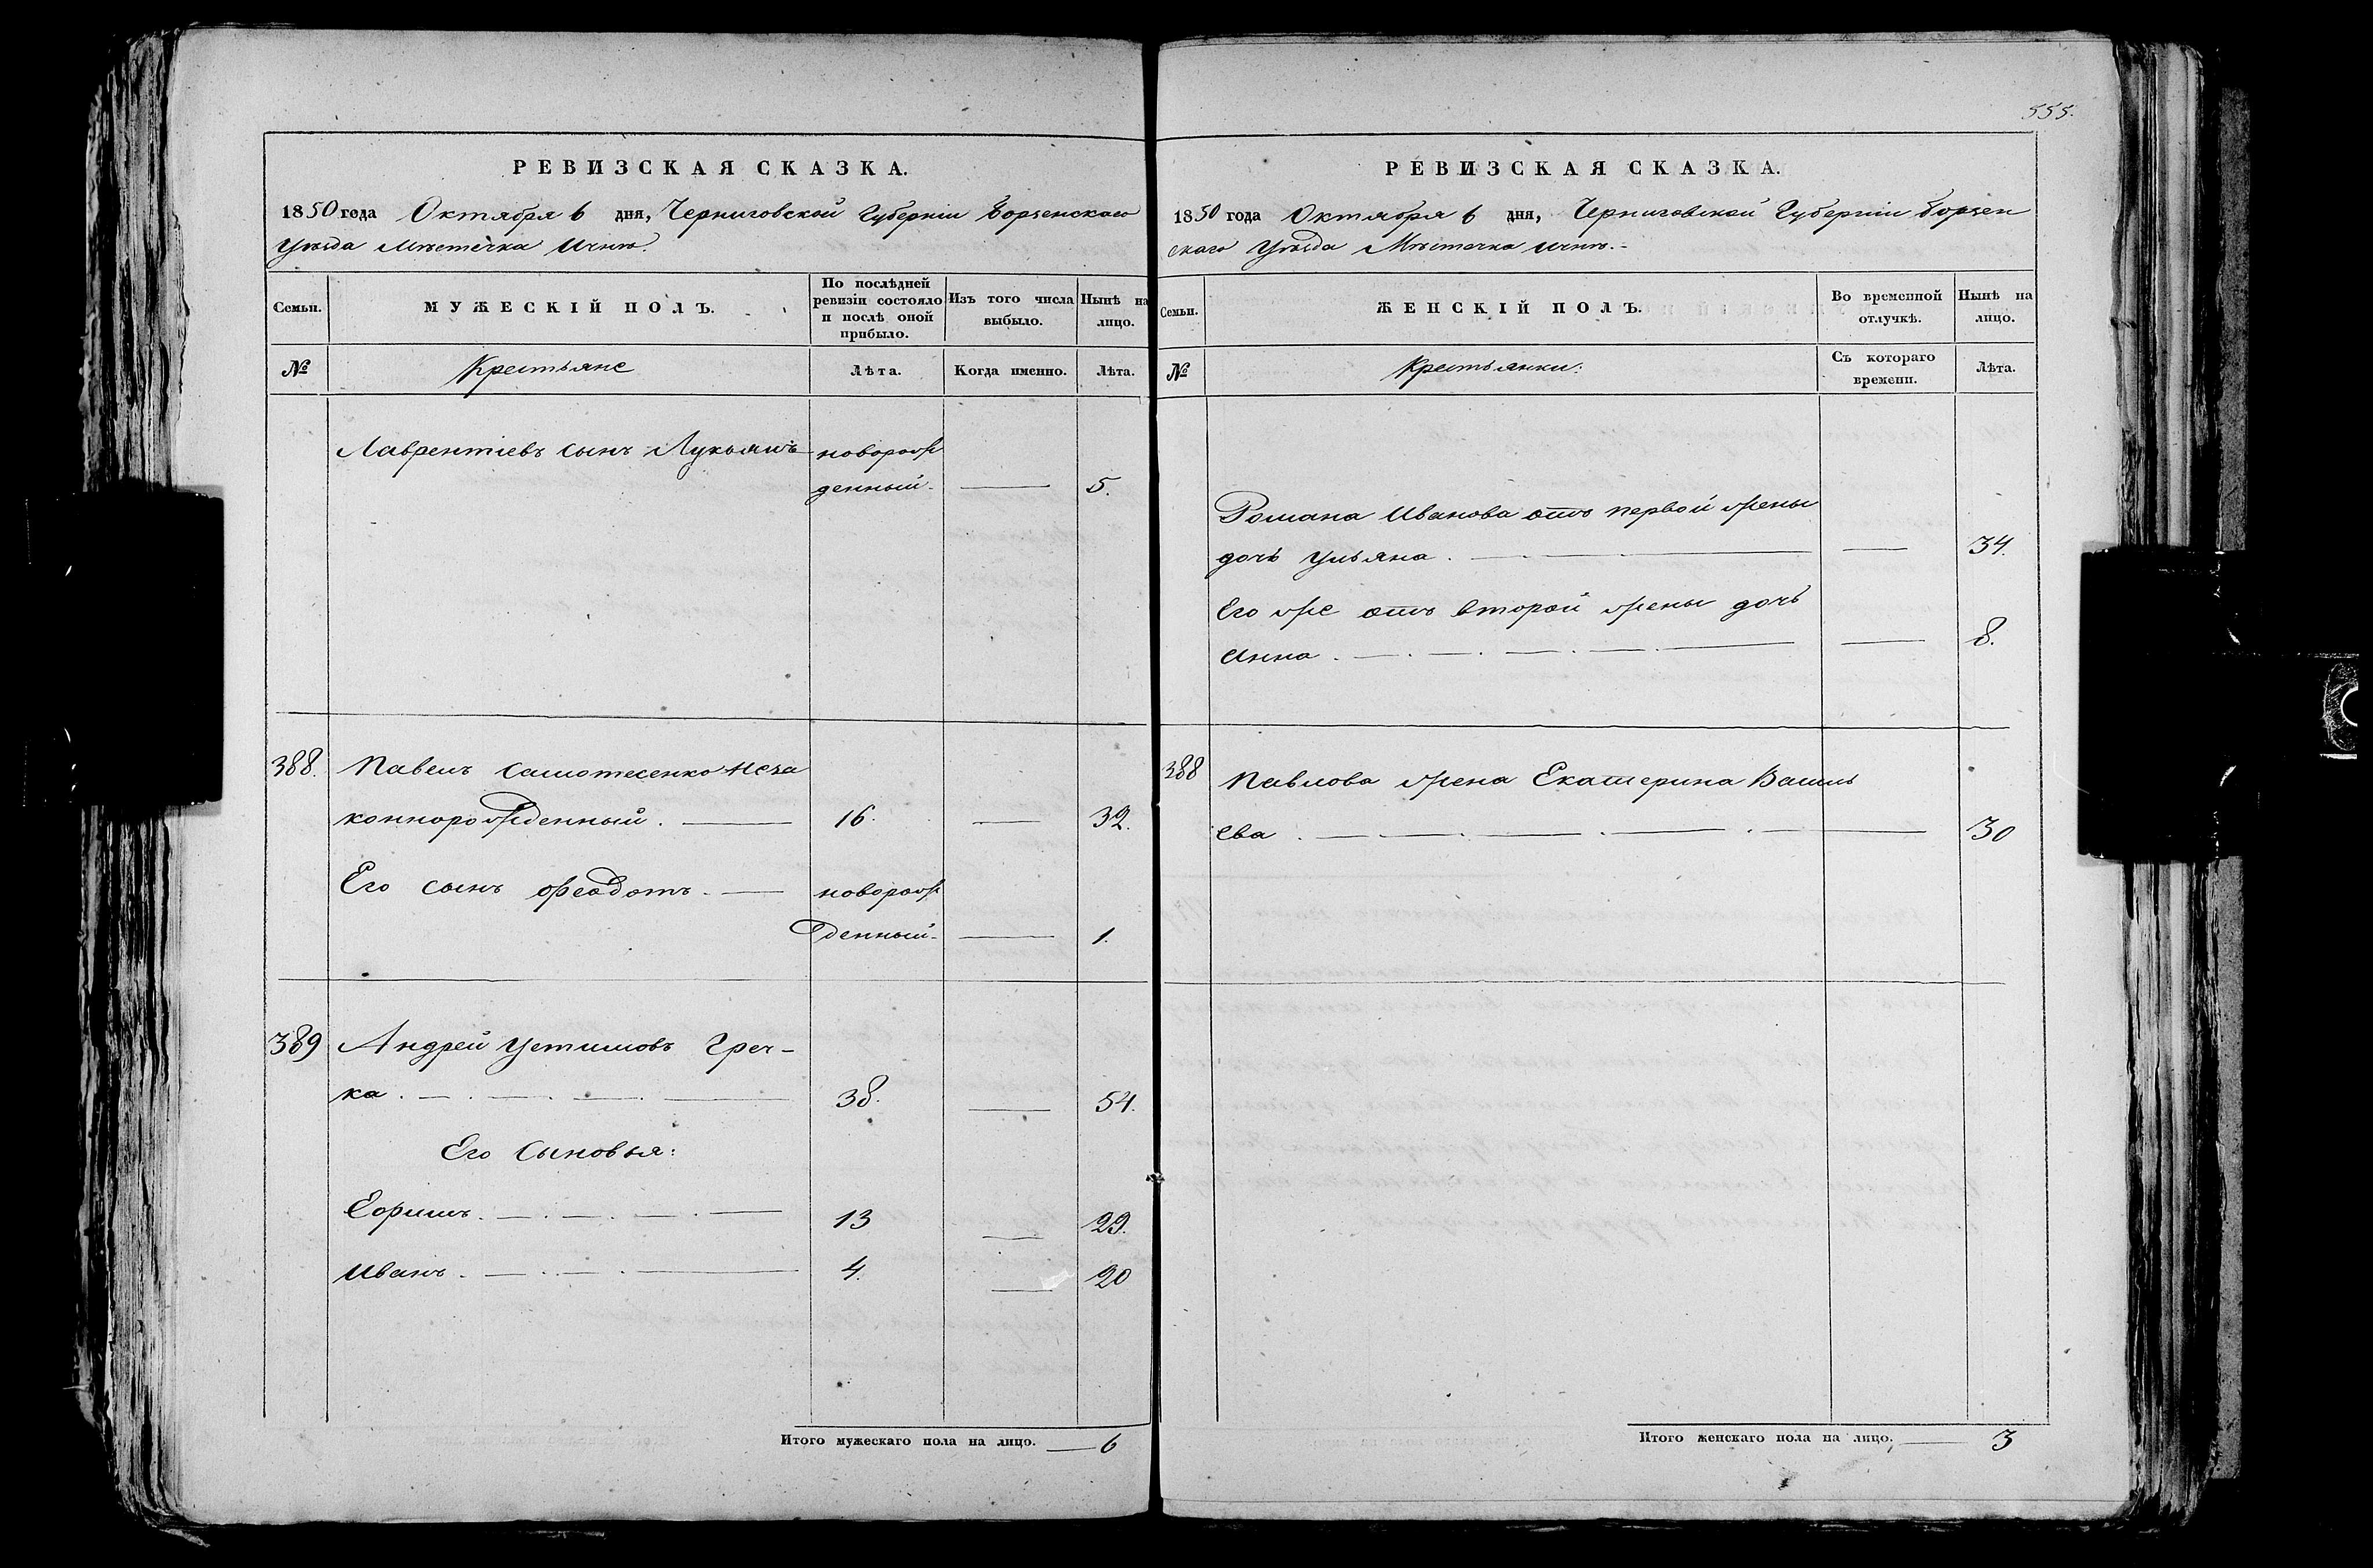 РЕВИЗСКАЯ СКАЗКА.
1850 года Октября 6 дня, Черниговской Губерніи Борзенскаго
Уѣзда Мѣстечка Ични.
Семьи.
МУЖЕСКІЙ ПОЛЪ.
По послѣдней ревизіи состояло и послѣ оной прибыло.
Изъ того числа выбыло.
Нынѣ на лицо.
№
Крестьяне
Лѣта.
Когда именно.
Лѣта.
Лаврентіевъ сынъ Лукьянъ новорож
денный. 5.
388. Павелъ Самотесенко неза
коннорожденный. 16. 32.
Его сынъ Феодотъ. новорож
денный. 1.
389 Андрей Устимовъ Греч-
ка. 38. 54.
Его Сыновья:
Ефимъ. 13 29.
Иванъ. 4. 20
Итого мужескаго пола на лицо. 6
555.
РЕВИЗСКАЯ СКАЗКА.
1850 года Октября 6 дня, Черниговской Губерніи Борзен
скаго Уѣзда Мѣстечка Ични.
Семьи.
ЖЕНСКІЙ ПОЛЪ.
Во временной отлучкѣ.
Нынѣ на лицо.
№
Крестьянки:
Съ котораго времени.
Лѣта.
Романа Иванова отъ первой жены
дочь Ульяна. 34.
Его же отъ второй жены дочь
Анна. 8.
388 Павлова жена Екатерина Василь
ева. 30
Итого женскаго пола на лицо. 3